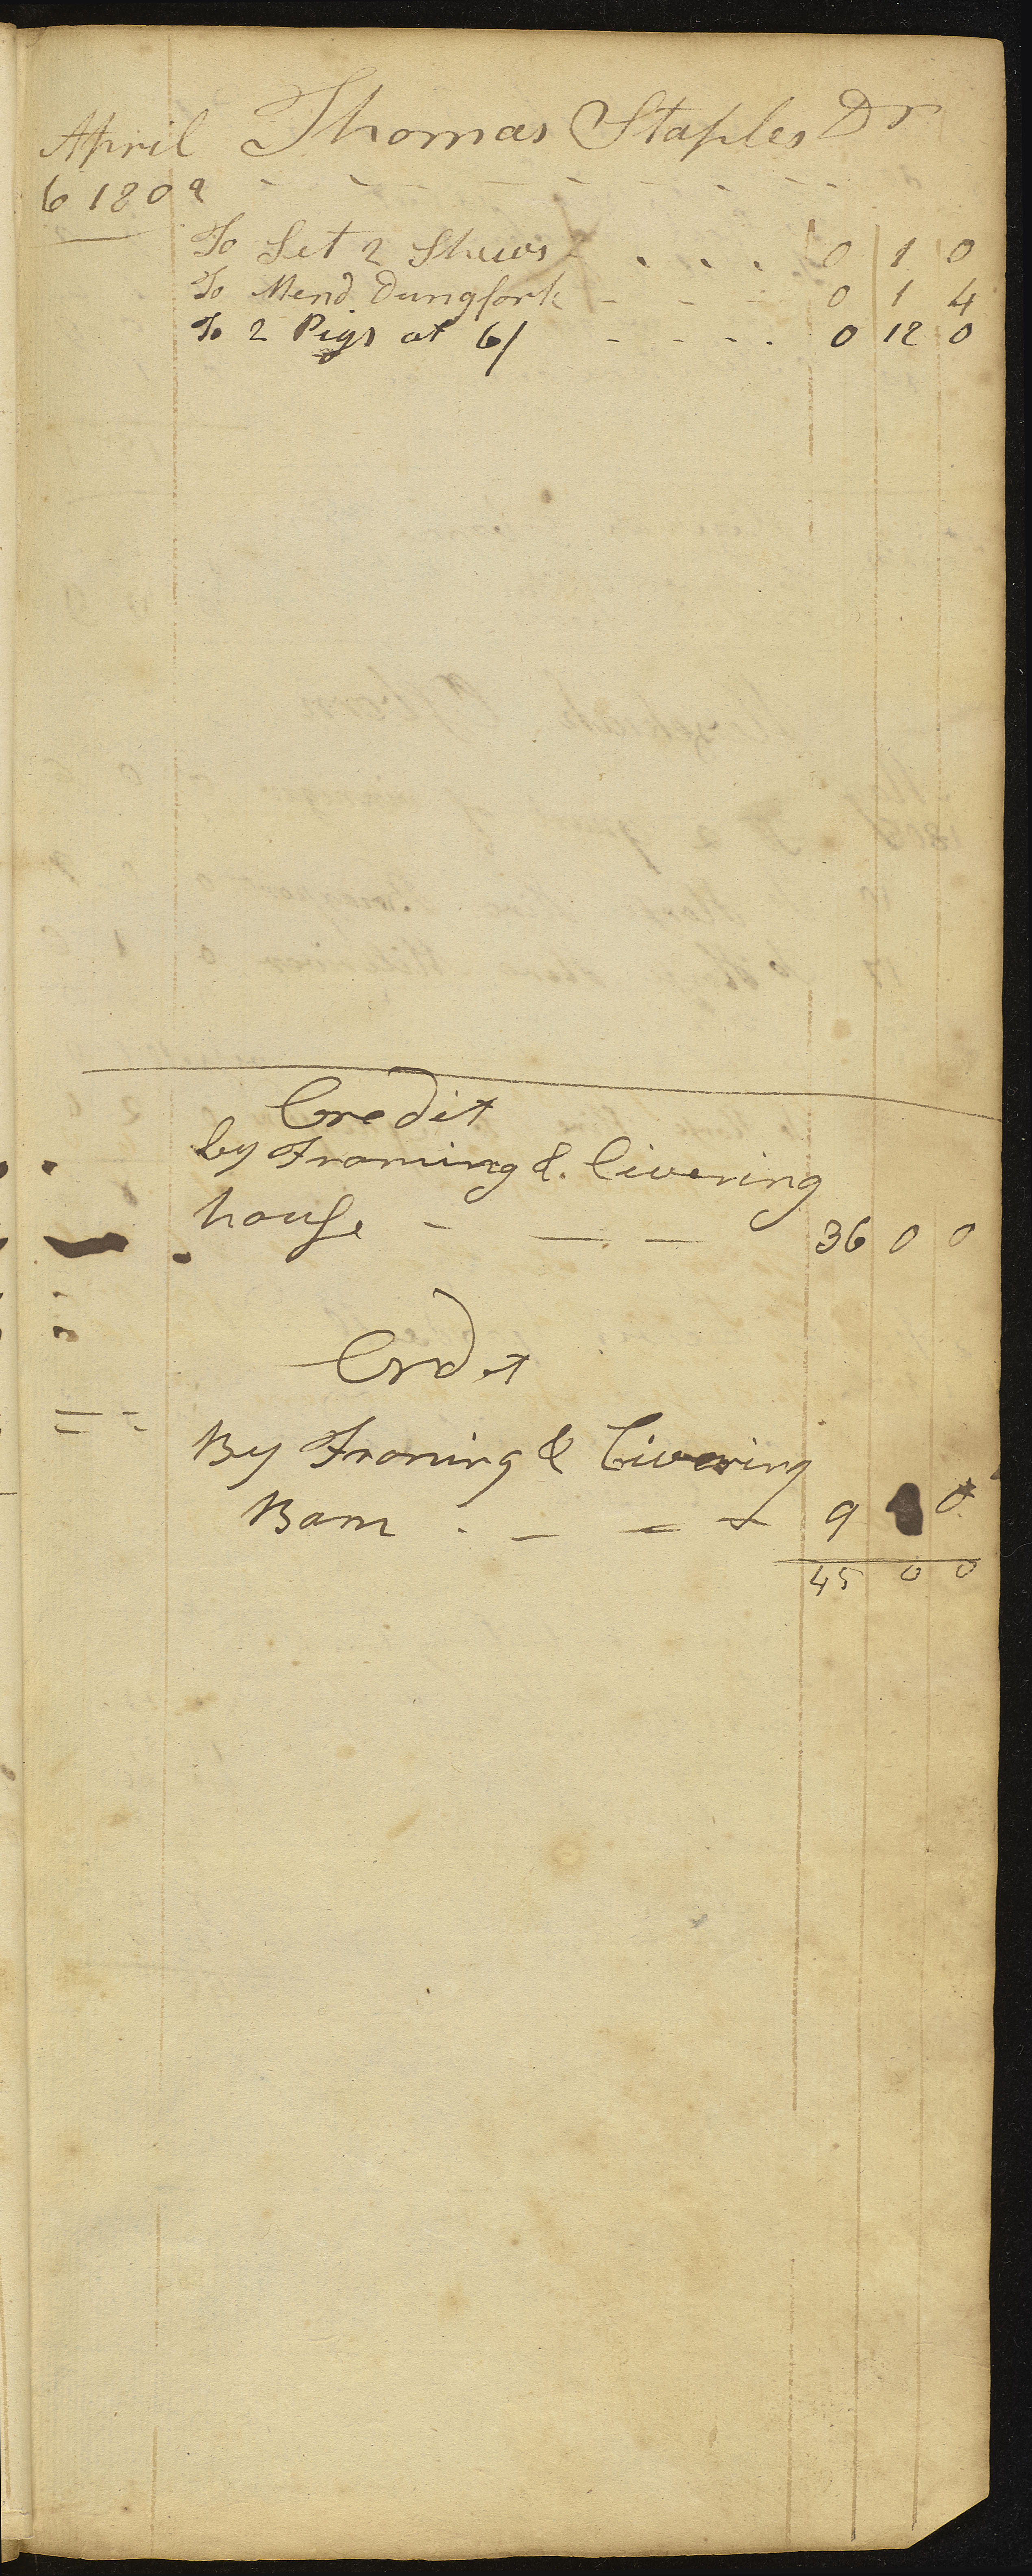 April Thomas Staples Dr
6 1809
To Set 2 Shews - . . . 0 1 0
To Mend Dungfork - - - 0 1 4
To 2 Pigs at 6/ - - - - 0 12 0
Credit
by Framing & Civering
house - — — 36 0 0
Crdit
By Framing & Civering
Barn . - - - 9 0
45 0 0